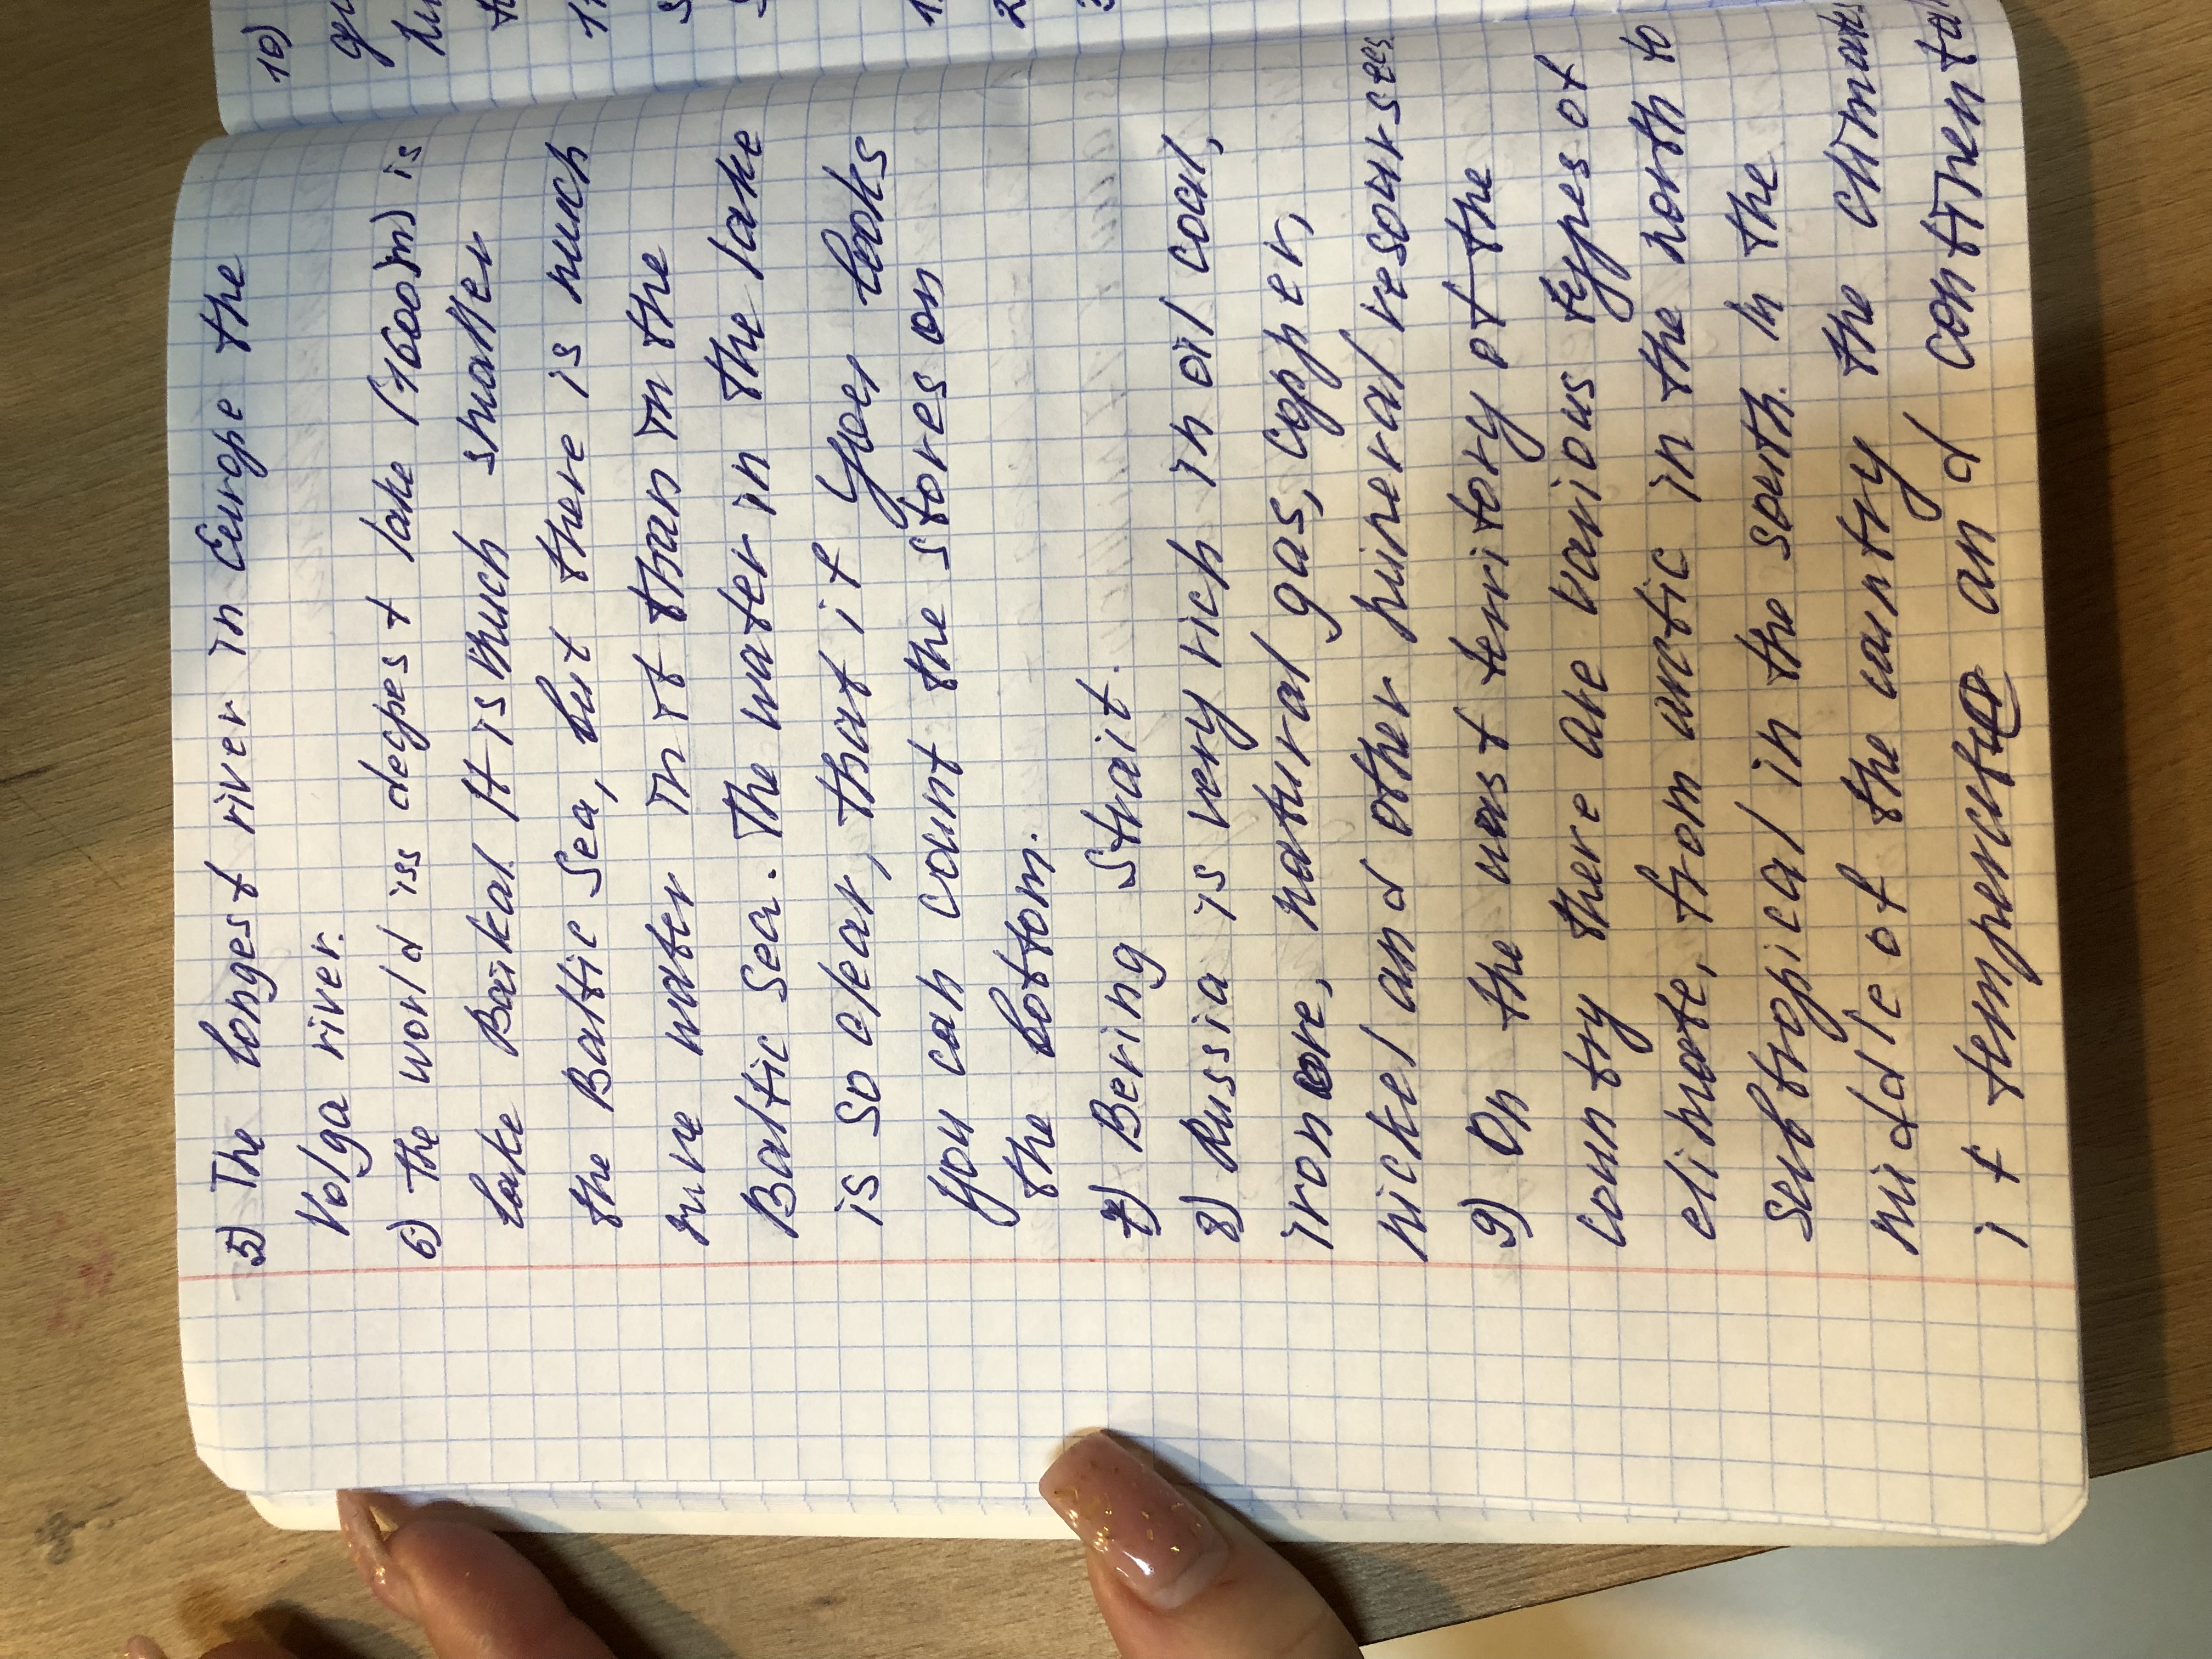 5) The longest river in Europe the
Volga river.
6) the world iss degpest lake (1600m) is
lake Baikal. It is much smaller
the Baltic Sea, but there is much
water in it than in the
Baltic Sea. The water in the lake
is so clear, that if your looks
you can count the stores on
the bottom.
7) Bering Strait.
8) Russia is very rich in oil, coal,
iron ore, natural gas, copper,
nickel and other mineral resourses
9) On the vast territory of the
country there are various types of
climate, from arctic in the north to
subtropical in the south. In the
middle of the country the climate
it and continental
10)